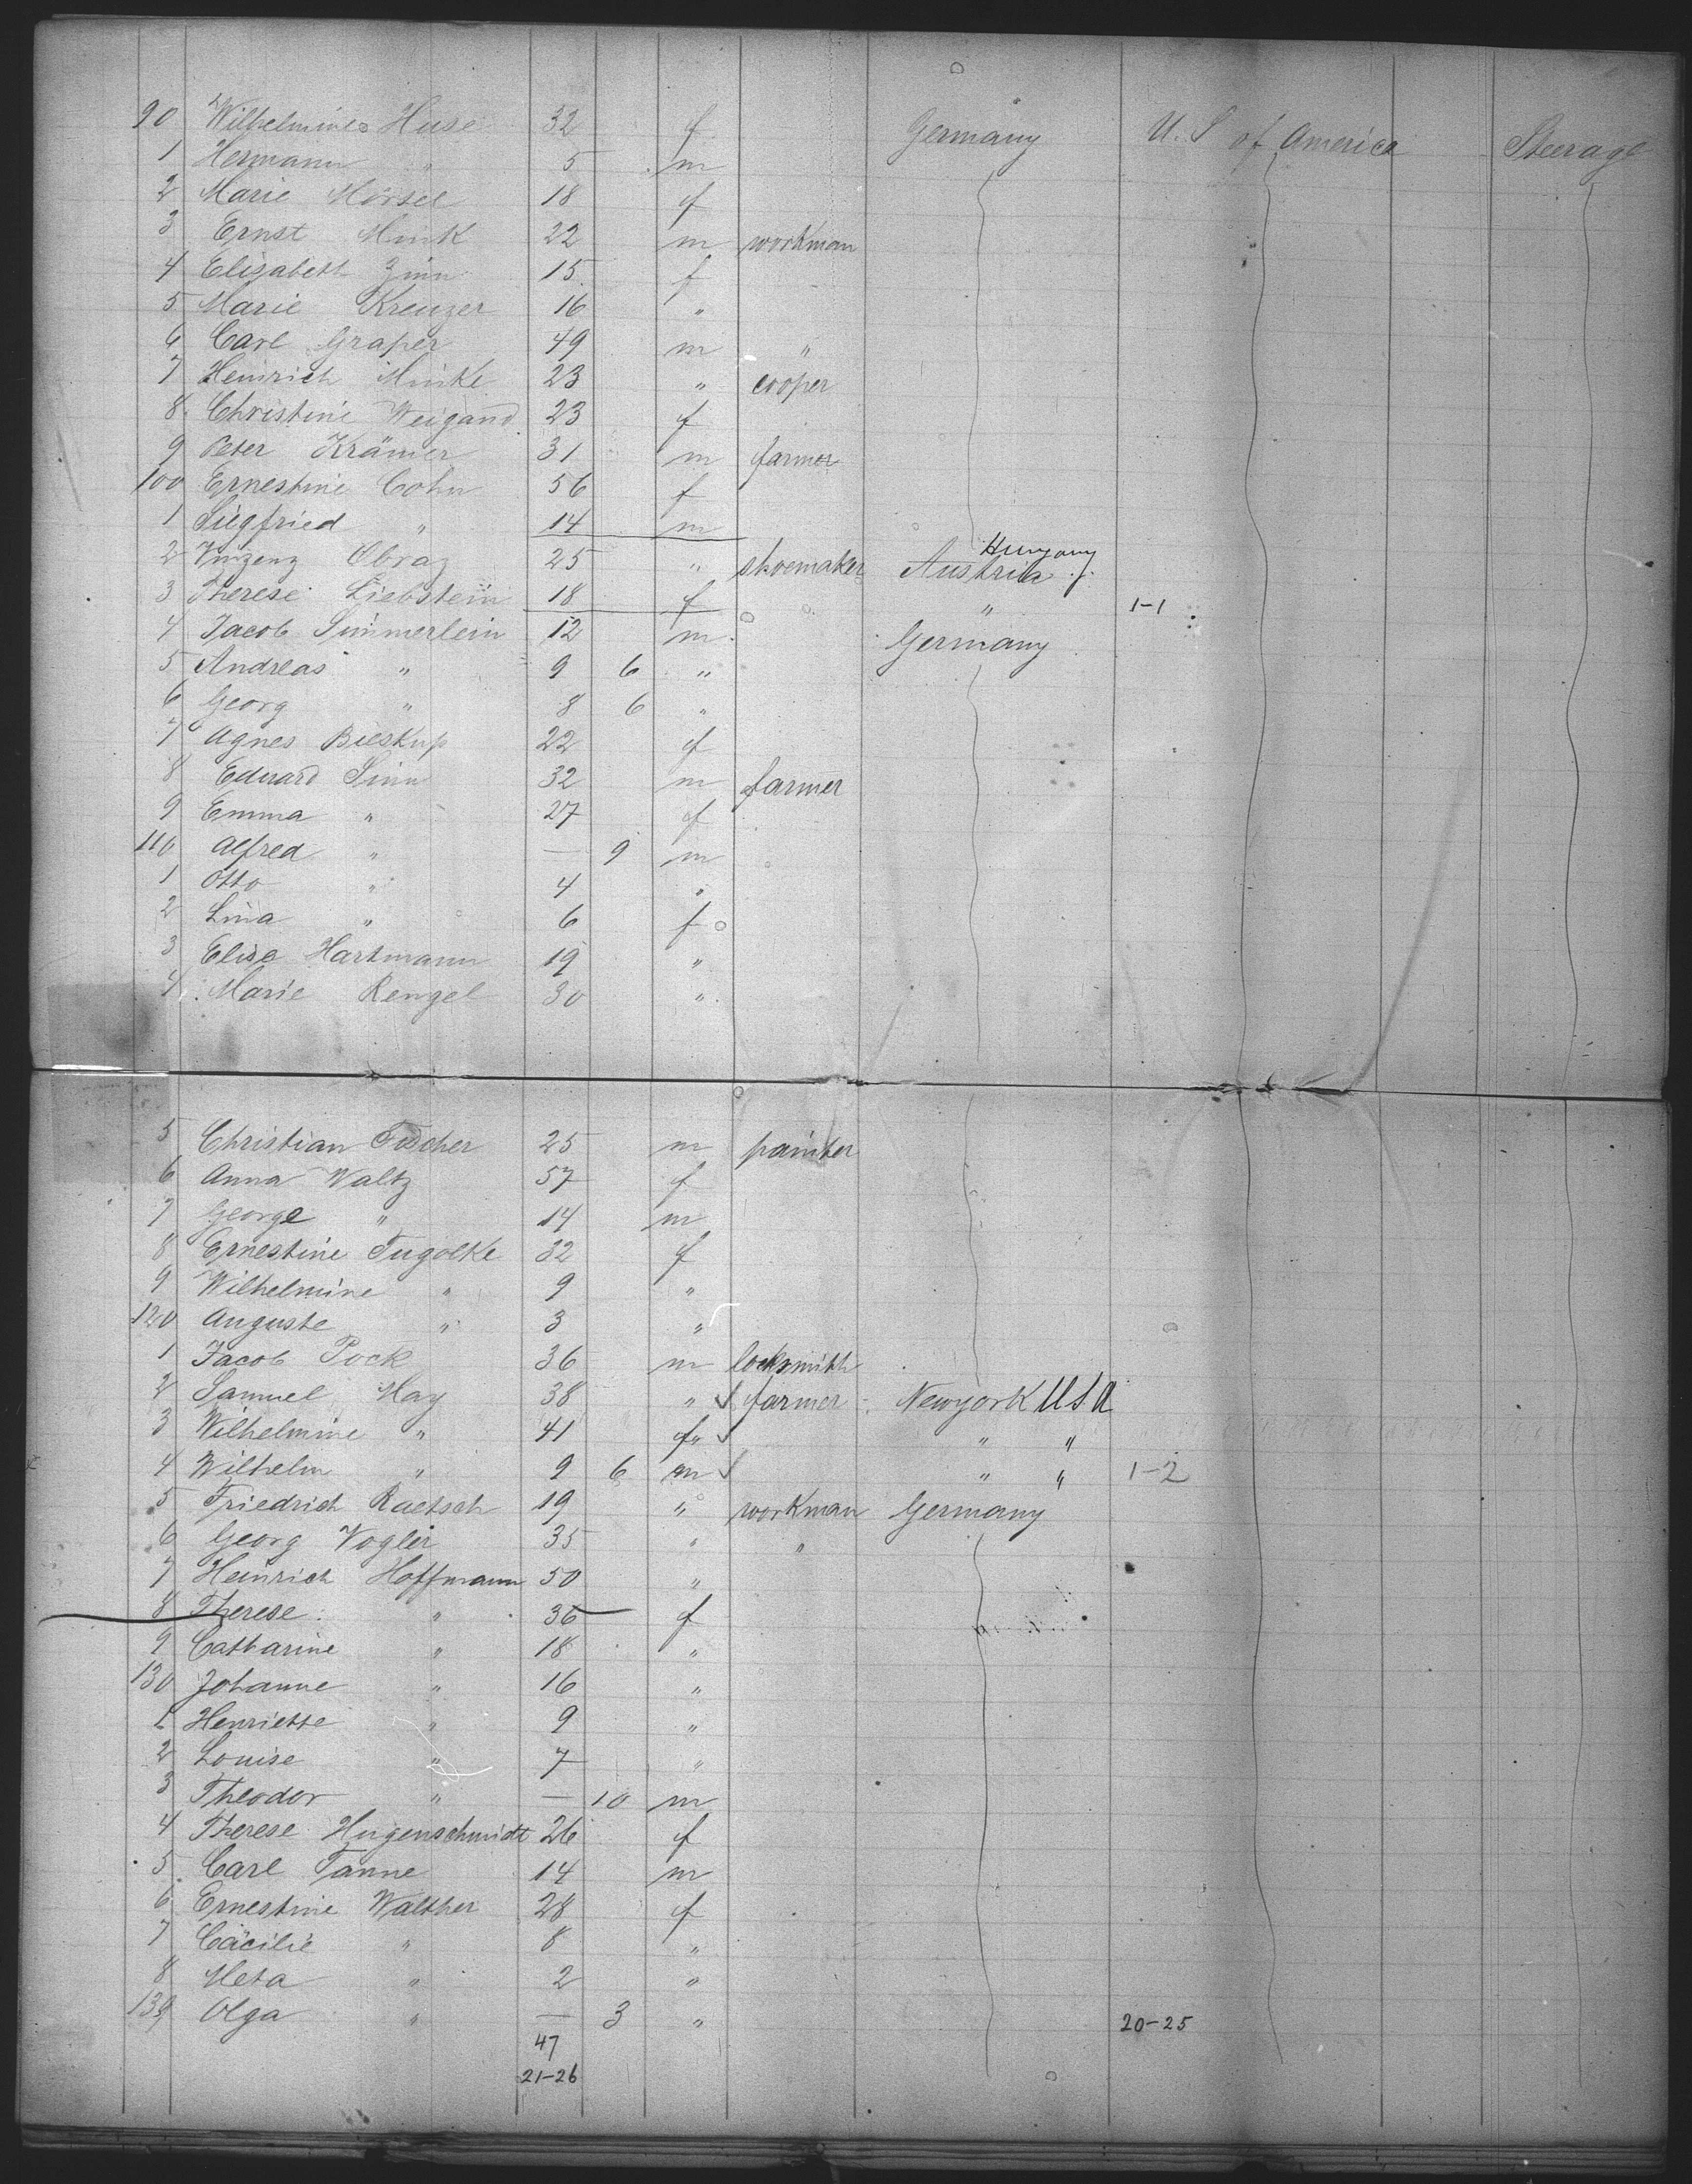 90 Wilhelmine Huse 32 f Germany U. S of America Steerage
1 Hermann " 5 m
2 Marie 18 f
3 Ernst Mink 22 m workman
4 Elisabeth Zinn 15 f
5 Marie Kreuzer 16 "
6 Carl Graper 49 m "
7 Heinrich Minke 23 " cooper
8 Christine Weigand 23 f
9 Peter Krämer 31 m farmer
100 Ernestine Cohn 56 f
1 Siegfried " 14 m
2 Vinzenz Obraz 25 " shoemaker Austria Hungary
3 Therese Liebstein 18 f " 1-1
4 Jacob Simmerlein 12 m Germany
5 Andreas " 9 6 "
6 Georg " 8 6 "
7 Agnes Bieskup 22 f
8 Eduard Sinn 32 m farmer
9 Emma " 27 f
110 Alfred " — 9 m
1 Otto " 4 "
2 Lina " 6 f
3 Elise Hartmann 19 "
4 Marie Rengel 30 "
5 Christian Fischer 25 m painter
6 Anna Waltz 57 f
7 George " 14 m
8 Ernestine Tugolke 32 f
9 Wilhelmine " 9 "
120 Auguste " 3 "
1 Jacob Pock 36 m locksmith
2 Samuel May 38 " farmer Newyork USA
3 Wilhelmine " 41 f " "
4 Wilhelm " 9 6 m " " 1-2
5 Friedrich Raetsch 19 " workman Germany
6 Georg Vogler 35 " "
7 Heinrich Hoffmann 50 "
8 Therese " 36 f
9 Catharine " 18 "
130 Johanne " 16 "
1 Henriette " 9 "
2 Louise " 7 "
3 Theodor " — 10 m
4 Therese Hugenschmidt 26 f
5 Carl Tanne 14 m
6 Ernestine Walther 28 f
7 Cäcilie " 8 "
8 Meta " 2 "
139 Olga " — 3 " 20-25
47
21-26